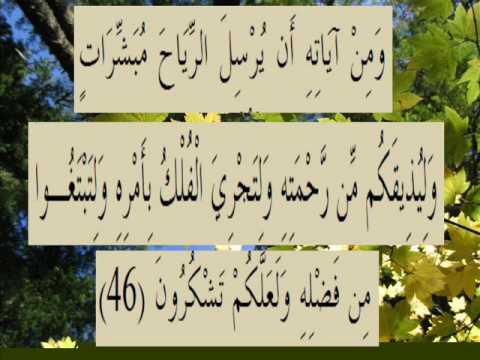 وَمِنْ آيَاتِهِ أَن يُرْسِلَ الرِّيَاحَ مُبَشِّرَاتٍ
وَلِيُذِيقَكُم مِّن رَّحْمَتِهِ وَلِتَجْرِيَ الْفُلْكُ بِأَمْرِهِ وَلِتَبْتَغُـــوا
مِن فَضْلِهِ وَلَعَلَّكُمْ تَشْكُرُونَ (46)